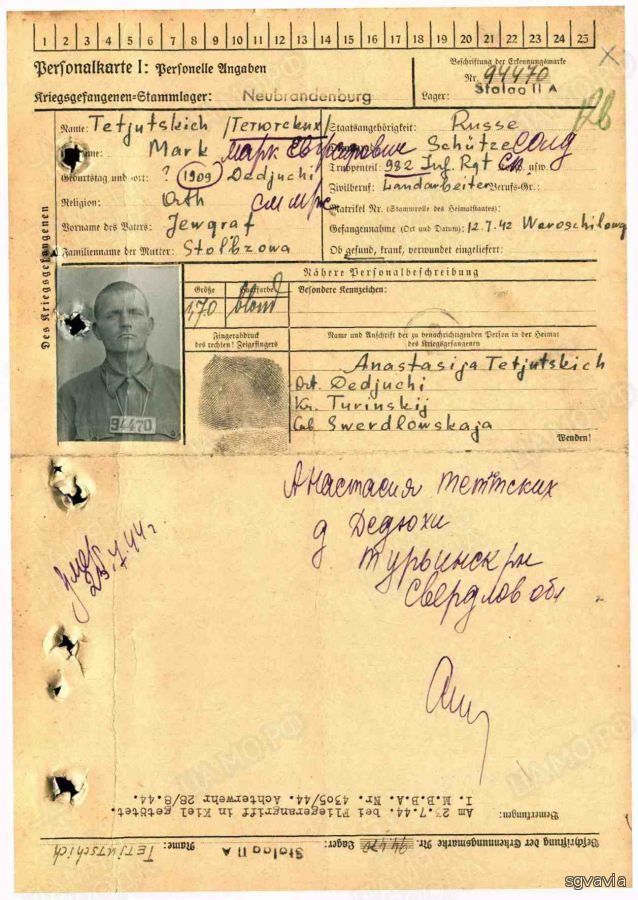 1 2 3 4 5 6 7 8 9 10 11 12 13 14 15 16 17 18 19 20 21 22 23 24 25
Personalkarte I: Personelle Angaben
Beschriftung der Erkennungsmarke
Nr. 94470
Kriegsgefangenen-Stammlager: Neubrandenburg
Lager: Stalag II A
Des Kriegsgefangenen
Name: Tetjutskich /Тетютских/
Staatsangehörigkeit: Russe
Mark Марк
Schütze СОЛД
Geburtstag und -ort: ? 1909 Dedjuchi
Truppenteil: 982 Inf. Rgt usw.
Religion: Orth
Zivilberuf: Landarbeiter Berufs-Gr.:
Matrikel Nr. (Stammrolle des Heimatstaates):
Vorname des Vaters: Jewgraf
Gefangennahme (Ort und Datum): 12.7.42 Woroschilowg
Familienname der Mutter: Stolbzowa
Ob gesund, krank, verwundet eingeliefert:
Nähere Personalbeschreibung
Größe Haarfarbe Besondere Kennzeichen:
1,70 blond
94470
Fingerabdruck
des rechten! Zeigefingers
Name und Anschrift der zu benachrichtigenden Person in der Heimat
des Kriegsgefangenen
Anastasija Tetjutskich
Ort. Dedjuchi
Kr. Turinskij
Swerdlowskaja
Wenden!
Анастасия
д Дедюхи
Свердлов обл
23.7.44г.
Bemerkungen:
Am 23.7.44. bei Fliegerangriff in Kiel getötet.
I. M.B.B.A. Nr. 4305/44. Achterwehr 28/8.44.
Beschriftung der Erkennungsmarke Nr. 94470 Lager: Stalag II A Name: Tetjutschich
ЦАМО РФ
sgvavia